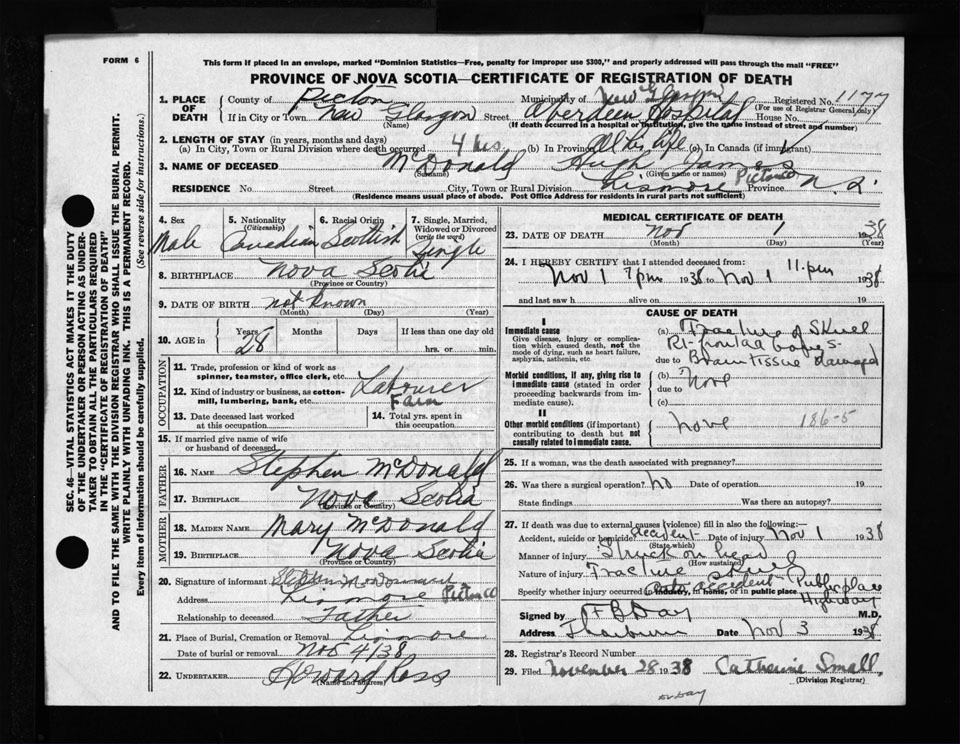 FORM 6
This form if placed in an envelope, marked "Dominion Statistics—Free, penalty for improper use $300," and properly addressed will pass through the mail "FREE"
PROVINCE OF NOVA SCOTIA—CERTIFICATE OF REGISTRATION OF DEATH
1. PLACE OF DEATH
County of Pictou Municipality of New Glasgow Registered No. 1177
(For use of Registrar General only)
If in City or Town New Glasgow Street Aberdeen Hospital House No.
(Name) (If death occurred in a hospital or institution, give the name instead of street and number)
2. LENGTH OF STAY (in years, months and days)
(a) In City, Town or Rural Division where death occurred 4 hrs (b) In Province All his life (c) In Canada (if immigrant)
3. NAME OF DECEASED McDonald Hugh James
(Surname) (Given name or names)
RESIDENCE No. Street City, Town or Rural Division Lismore Pictou Co Province N.S.
(Residence means usual place of abode. Post Office Address for residents in rural parts not sufficient)
4. Sex Male
5. Nationality (Citizenship) Canadian
6. Racial Origin Scottish
7. Single, Married, Widowed or Divorced (write the word) Single
8. BIRTHPLACE Nova Scotia
(Province or Country)
9. DATE OF BIRTH not known
(Month) (Day) (Year)
10. AGE in Years 28 Months Days If less than one day hrs. or min.
OCCUPATION
11. Trade, profession or kind of work as spinner, teamster, office clerk, etc. Labourer
12. Kind of industry or business, as cotton-mill, lumbering, bank, etc. Farm
13. Date deceased last worked at this occupation
14. Total yrs. spent in this occupation
15. If married give name of wife or husband of deceased
FATHER
16. NAME Stephen McDonald
17. BIRTHPLACE Nova Scotia
(Province or Country)
MOTHER
18. MAIDEN NAME Mary McDonald
19. BIRTHPLACE Nova Scotia
(Province or Country)
20. Signature of informant Stephen McDonald
Address Lismore Pictou Co
Relationship to deceased Father
21. Place of Burial, Cremation or Removal Lismore
Date of burial or removal Nov 4/38
22. UNDERTAKER Howard Ross
(Name and address)
MEDICAL CERTIFICATE OF DEATH
23. DATE OF DEATH Nov 1 1938
(Month) (Day) (Year)
24. I HEREBY CERTIFY that I attended deceased from:
Nov 1 7 pm 1938 to Nov 1 11 pm 1938
and last saw h alive on 19
CAUSE OF DEATH
I
Immediate cause
Give disease, injury or complication which caused death, not the mode of dying, such as heart failure, asphyxia, asthenia, etc.
(a) Fracture of Skull
Rt frontal bones
due to Brain tissue damaged
Morbid conditions, if any, giving rise to immediate cause (stated in order proceeding backwards from immediate cause).
(b) None
due to
(c)
II
Other morbid conditions (if important) contributing to death but not causally related to immediate cause.
None 186-5
25. If a woman, was the death associated with pregnancy?
26. Was there a surgical operation? no Date of operation 19
State findings Was there an autopsy?
27. If death was due to external causes (violence) fill in also the following:—
Accident, suicide or homicide? accident Date of injury Nov 1 1938
(State which)
Manner of injury Struck on head
(How sustained)
Nature of injury Fracture Skull
Specify whether injury occurred in industry, in home, or in public place Auto accident Public place Highway
Signed by H B Day M.D.
Address Date Nov 3 1938
28. Registrar's Record Number
29. Filed November 28 1938 Catherine Small
(Division Registrar)
Dr Day
SEC. 46—VITAL STATISTICS ACT MAKES IT THE DUTY
OF THE UNDERTAKER OR PERSON ACTING AS UNDER-
TAKER TO OBTAIN ALL THE PARTICULARS REQUIRED
IN THE "CERTIFICATE OF REGISTRATION OF DEATH"
AND TO FILE THE SAME WITH THE DIVISION REGISTRAR WHO SHALL ISSUE THE BURIAL PERMIT.
WRITE PLAINLY WITH UNFADING INK. THIS IS A PERMANENT RECORD.
Every item of information should be carefully supplied. (See reverse side for instructions.)